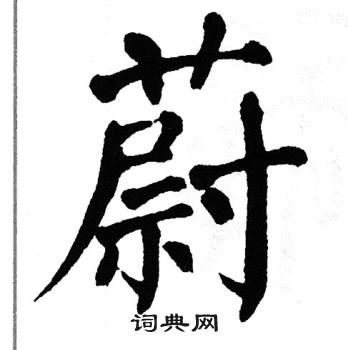 蔚
词典网